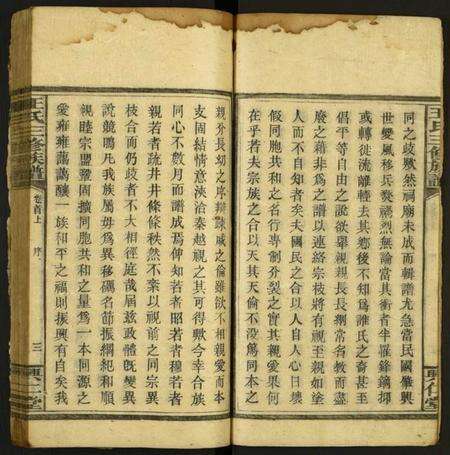 同之歧歟然祠廟未成而輯譜尤急當民國肇興
世變風移兵燹禍烈無論當其衝者半罹鋒鏑抑
或轉徙流離輕去其鄉後不知爲誰氏之裔甚至
倡平等自由之說欲舉親親長長綱常名教而盡
廢之藉非爲之譜以連絡宗枝將有視至親如塗
人而不自知者矣夫國民之合以人自人心日壞
假同胞共和之名行專制分裂之實其親愛果何
在乎若夫宗族之合以天其天倫不沒爲同本之
親分長幼之序辯踈戚之倫雖欲不相親愛而本
支固結情意浹洽秦越視之其可得歟今幸合族
同心不數月而譜成焉俾知若者昭若者穆若者
親若者疏井井條條秩然不紊以視前之同宗異
枝合而仍歧者不大相徑庭哉屆玆政體旣變異
說競鳴凡我族屬毋爲異移礪名節振綱紀和順
親睦宗盟鞏固擴同胞共和之量爲一本同源之
愛雍雍藹藹釀一族和平之福則振興有自矣我
王氏三修族譜
卷首上
序
三